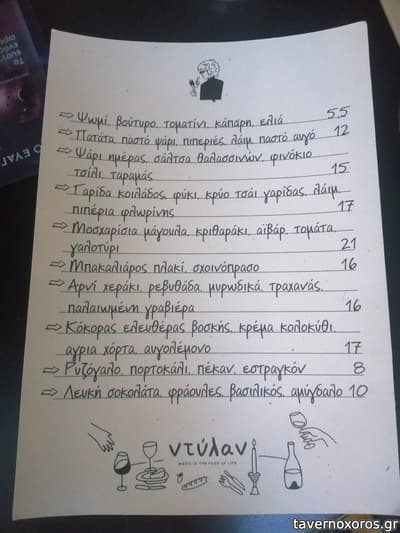 ⇨ Ψωμί, βούτυρο, τοματίνι, κάπαρη, ελιά 5.5
⇨ Πατάτα, παστό ψάρι, πιπεριές, λάιμ, παστό αυγό 12
⇨ Ψάρι ημέρας, σάλτσα θαλασσινών, φινόκιο
τσίλι, ταραμάς 15
⇨ Γαρίδα κοιλάδος, φύκι, κρύο τσάι γαρίδας, λάιμ,
πιπέρια φλωρίνης 17
⇨ Μοσχαρίσια μάγουλα, κριθαράκι, αϊβάρ, τομάτα,
γαλοτύρι 21
⇨ Μπακαλιάρος πλακί, σχοινόπρασο 16
⇨ Αρνί χεράκι, ρεβυθάδα, μυρωδικά, τραχανάς,
παλαιωμένη γραβιέρα 16
⇨ Κόκορας ελευθέρας βοσκής, κρέμα κολοκύθι,
αγρια χόρτα, αυγολέμονο 17
⇨ Ρυζόγαλο, πορτοκάλι, πέκαν, εστραγκόν 8
⇨ Λευκή σοκολάτα, φράουλες, βασιλικός, αμύγδαλο 10
ντύλαν
MUSIC IS THE FOOD OF LIFE
tavernoxoros.gr